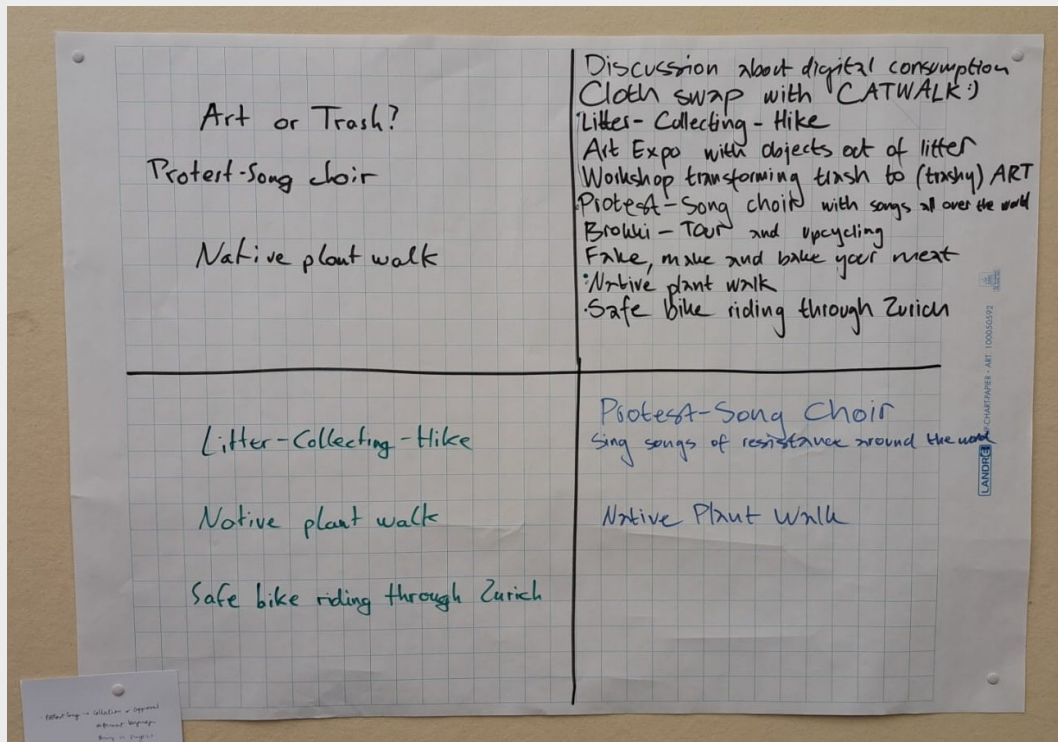 Art or Trash?
Protest-Song choir
Native plant walk
Discussion about digital consumption
Cloth swap with CATWALK:)
Litter-Collecting-Hike
Art Expo with objects out of litter
Workshop transforming trash to (trashy) ART
Protest-Song choir with songs all over the world
Brocki-Tour and upcycling
Fake, make and bake your meat
Native plant walk
Safe bike riding through Zurich
Litter-Collecting-Hike
Native plant walk
Safe bike riding through Zurich
Protest-Song Choir
Sing songs of resistance around the world
Native Plant Walk
LANDRÉ
-CHART-PAPIER · ART. 100050592